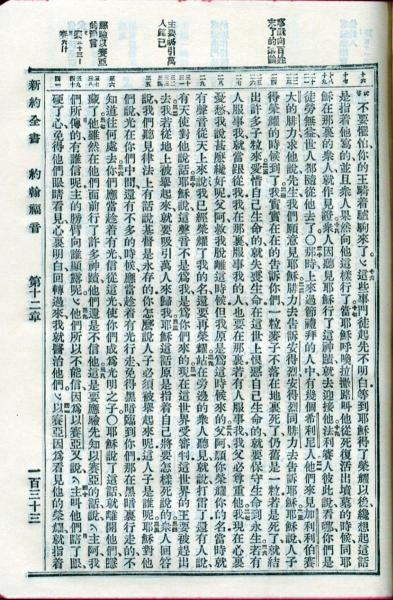 希臘向百姓
主要吸引萬人歸已
應驗以賽亞的話
不要懼怕你的王騎着驢駒來了這些事門徒起先不明白等到耶穌得了榮耀以後纔想起這話
是指着他寫的並且眾人果然向他這樣行了當耶穌呼喚拉撒路叫他從死復活出墳墓的時候同耶
穌在那裏的眾人就作見證眾人因聽見耶穌行了這神蹟就去迎接他法利賽人彼此說看哪你們是
徒勞無益世人都隨從他去了○那時上來過節禮拜的人中有幾個希利尼人他們來見加利利伯賽
大的腓力求他說先生我們願意見耶穌腓力去告訴安得烈安得烈同腓力去告訴耶穌耶穌說人子
得榮耀的時候到了我實實在在的告訴你們一粒麥子不落在地裏死了仍舊是一粒若是死了就結
出許多子粒來愛惜自己生命的就失喪生命在這世上恨惡自己生命的就要保守生命到永生若有
人服事我就當跟從我我在那裏服事我的人也要在那裏若有人服事我我父必尊重他我現在心裏
憂愁我說甚麼纔好呢父阿救我脫離這時候但我原是為這時候來的父阿願你榮耀你的名當時就
有聲音從天上來說我已經榮耀了我的名還要再榮耀站在旁邊的眾人聽見就說打雷了還有人說
有天使對他說話耶穌說這聲音不是為我是為你們來的現在這世界受審判這世界的王要被趕出
去我若從地上被舉起來就要吸引萬人來歸我耶穌這話原是指着自己將要怎樣死說的眾人回答
說我們聽見律法上有話說基督是永存的你怎麼說人子必須被舉起來呢這人子是誰呢耶穌對他
們說光在你們中間還有不多的時候應當趁着有光行走免得黑暗臨到你們那在黑暗裏行走的不
知道往何處去你們應當趁着有光信從這光使你們成為光明之子○耶穌說了這話就離開他們隱
藏了他雖然在他們面前行了許多神蹟他們還是不信他這是要應驗先知以賽亞的話說主阿我
們所傳的有誰信呢主的膀臂向誰顯露呢他們所以不能信因為以賽亞又說主叫他們瞎了眼
硬了心免得他們眼睛看見心裏明白回轉過來我就醫治他們以賽亞因為看見他的榮耀就指着
新約全書 約翰福音 第十二章 一百三十三